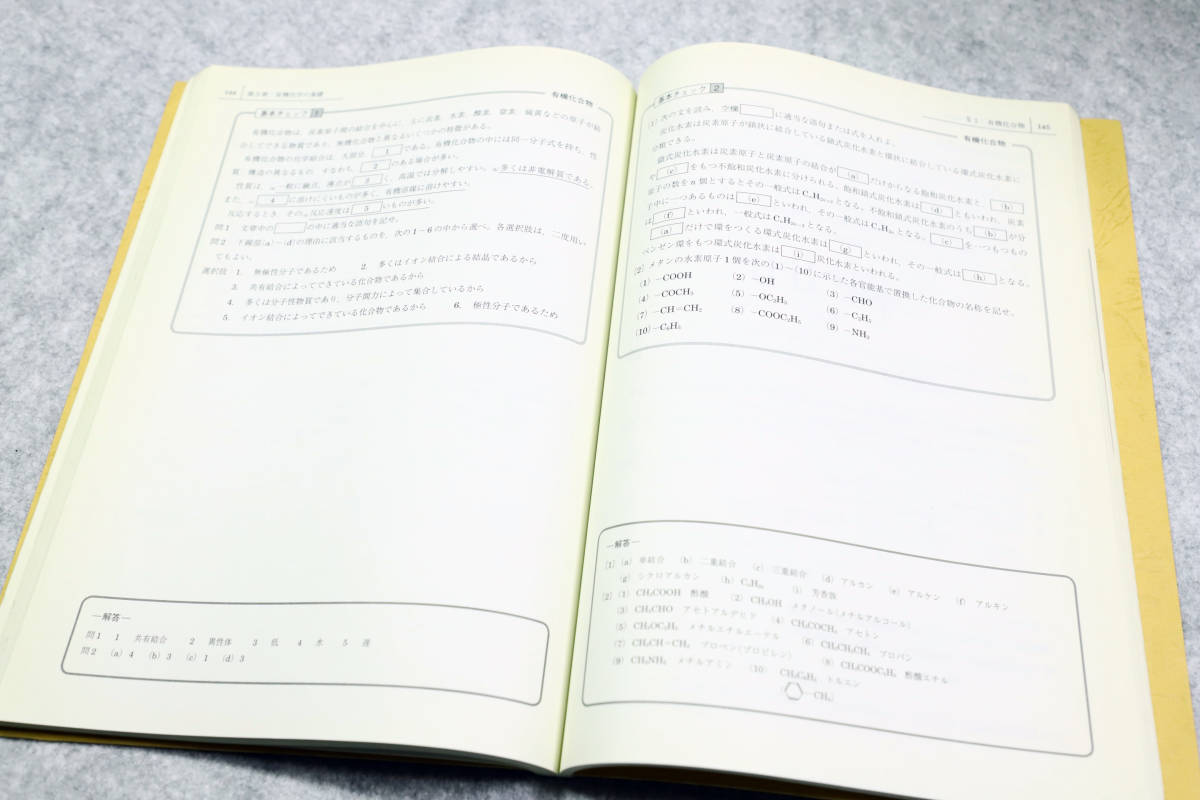 144 第5章 有機化学の基礎
有機化合物
基本チェック 1
有機化合物は,炭素原子間の結合を中心に,主に炭素,水素,酸素,窒素,硫黄などの原子が結
合してできる物質であり,無機化合物と異なるいくつかの特徴がある。
有機化合物の化学結合は,大部分, 1 である。有機化合物の中には同一分子式を持ち,性
質,構造の異なるもの,すなわち, 2 のある場合が多い。
性質は,(a)一般に融点,沸点が 3 く,高温では分解しやすい。(b)多くは非電解質である。
また,(c) 4 に溶けにくいものが多く,有機溶媒に溶けやすい。
反応するとき,その(d)反応速度は 5 いものが多い。
問1 文章中の の中に適当な語句を記せ。
問2 下線部(a)~(d)の理由に該当するものを,次の1~6の中から選べ。各選択肢は,二度用い
てもよい。
選択肢 1. 無極性分子であるため 2. 多くはイオン結合による結晶であるから
3. 共有結合によってできている化合物であるから
4. 多くは分子性物質であり,分子間力によって集合しているから
5. イオン結合によってできている化合物であるから 6. 極性分子であるため
―解答―
問1 1 共有結合 2 異性体 3 低 4 水 5 遅
問2 (a) 4 (b) 3 (c) 1 (d) 3
§1 有機化合物 145
有機化合物
基本チェック 2
(1) 次の文を読み,空欄 に適当な語句または式を入れよ。
炭化水素は炭素原子が鎖状に結合している鎖式炭化水素と環状に結合している環式炭化水素に
分類できる。
鎖式炭化水素は炭素原子と炭素原子の結合が (a) だけからなる飽和炭化水素と, (b)
や (c) をもつ不飽和炭化水素に分けられる。飽和鎖式炭化水素は (d) ともいわれ,炭素
原子の数をn個とするとその一般式はCnH2n+2となる。不飽和鎖式炭化水素のうち (b) が分
子中に一つあるものは (e) といわれ,その一般式はCnH2nとなる。 (c) を一つもつもの
は (f) といわれ,一般式はCnH2n-2となる。
(a) だけで環をつくる環式炭化水素は (g) といわれ,その一般式は (h) となる。
ベンゼン環をもつ環式炭化水素は (i) 炭化水素といわれる。
(2) メタンの水素原子1個を次の(1)~(10)に示した各官能基で置換した化合物の名称を記せ。
(1) -COOH (2) -OH (3) -CHO
(4) -COCH3 (5) -OC2H5 (6) -C2H5
(7) -CH=CH2 (8) -COOC2H5 (9) -NH2
(10) -C6H5
―解答―
(1) (a) 単結合 (b) 二重結合 (c) 三重結合 (d) アルカン (e) アルケン (f) アルキン
(g) シクロアルカン (h) CnH2n (i) 芳香族
(2) (1) CH3COOH 酢酸 (2) CH3OH メタノール(メチルアルコール)
(3) CH3CHO アセトアルデヒド (4) CH3COCH3 アセトン
(5) CH3OC2H5 メチルエチルエーテル (6) CH3CH2CH3 プロパン
(7) CH3CH=CH2 プロペン(プロピレン) (8) CH3COOC2H5 酢酸エチル
(9) CH3NH2 メチルアミン (10) CH3C6H5 トルエン
-CH3